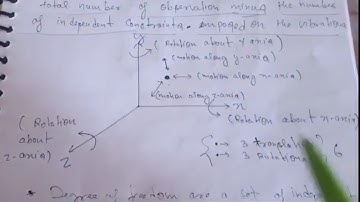 total number of observation minus the number
of independent constraints. imposed on the vibrations
(Rotation about Y axis)
(motion along y-axis)
(motion along x-axis)
(motion along z-axis)
x
(Rotation about x-axis)
(Rotation
about
z-axis)
z
→ 3 translation
→ 3 Rotation
6
* Degree of freedom are a set of